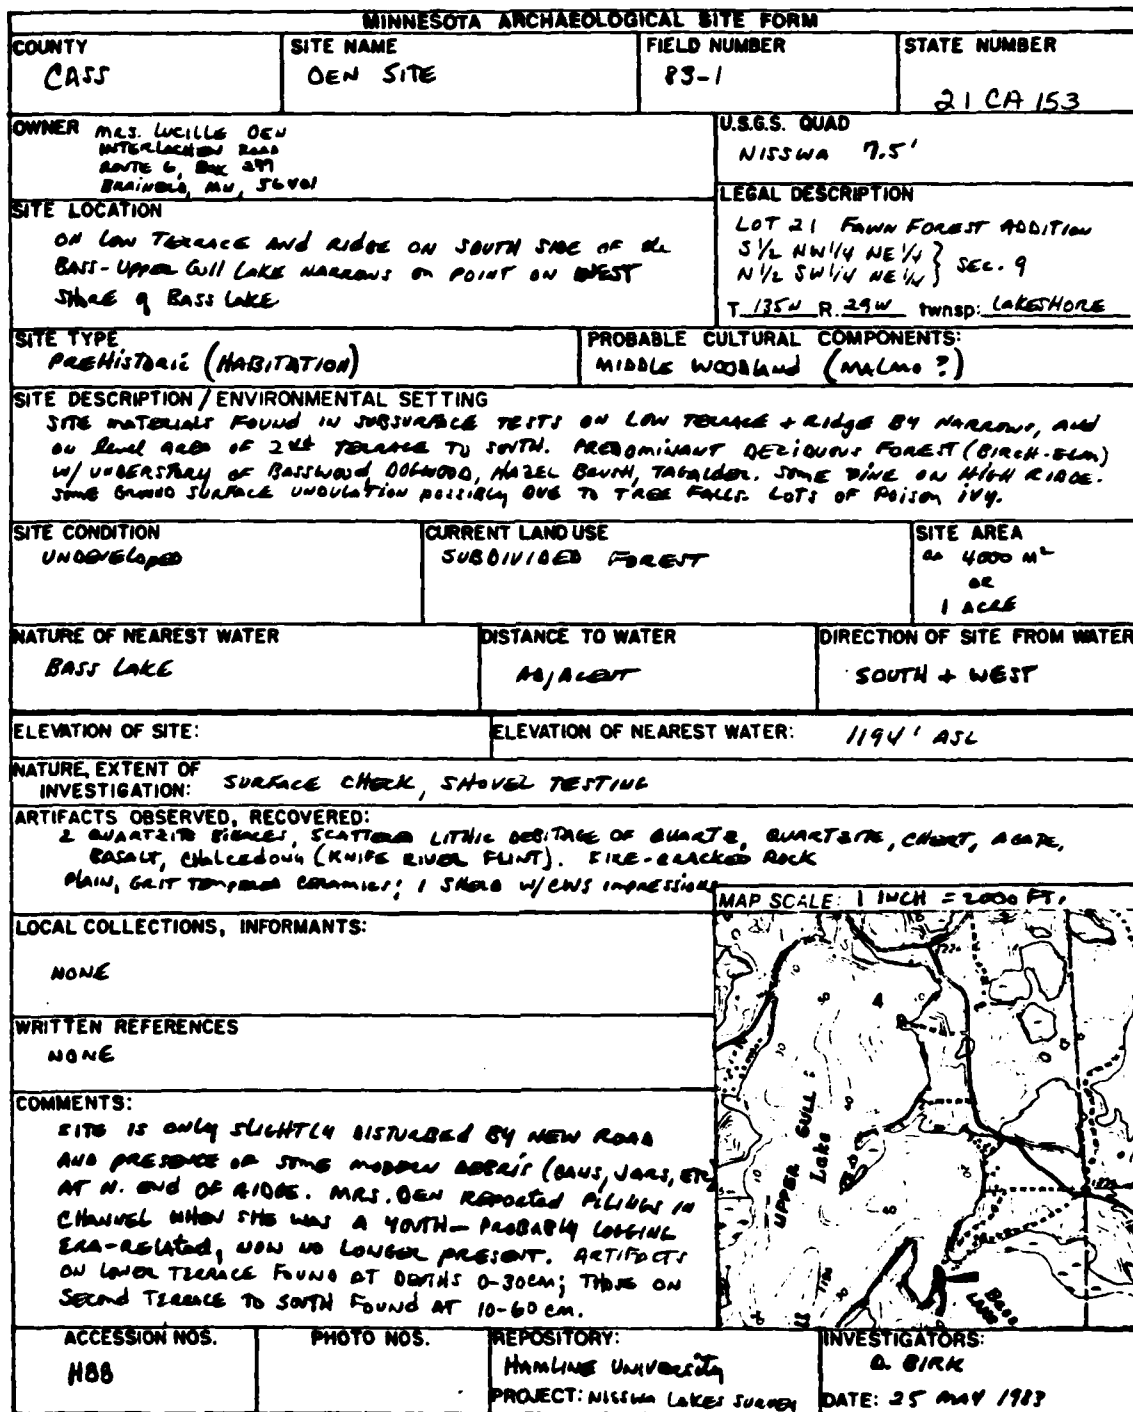 MINNESOTA ARCHAEOLOGICAL SITE FORM
COUNTY
CASS
SITE NAME
OEN SITE
FIELD NUMBER
83-1
STATE NUMBER
21 CA 153
OWNER MRS. LUCILLE OEN
INTERLACHEN ROAD
ROUTE 6, BOX 277
BRAINERD, MN, 56401
U.S.G.S. QUAD
NISSWA 7.5'
LEGAL DESCRIPTION
LOT 21 FAWN FOREST ADDITION
S 1/2 NW 1/4 NE 1/4
N 1/2 SW 1/4 NE 1/4 } SEC. 9
T. 135N R. 29W twnsp: LAKESHORE
SITE LOCATION
ON LOW TERRACE AND RIDGE ON SOUTH SIDE OF the
BASS-UPPER GULL LAKE NARROWS ON POINT ON WEST
SHORE of BASS LAKE
SITE TYPE
PREHISTORIC (HABITATION)
PROBABLE CULTURAL COMPONENTS:
MIDDLE WOODLAND (MALMO ?)
SITE DESCRIPTION / ENVIRONMENTAL SETTING
SITE MATERIALS FOUND IN SUBSURFACE TESTS ON LOW TERRACE + RIDGE BY NARROWS, AND
ON level AREA OF 2nd TERRACE TO SOUTH. PREDOMINANT DECIDUOUS FOREST (BIRCH-ELM)
W/ UNDERSTORY OF BASSWOOD, DOGWOOD, HAZEL BRUSH, TAGALDER. SOME PINE ON HIGH RIDGE.
SOME GROUND SURFACE UNDULATION POSSIBLY DUE TO TREE FALLS. LOTS OF POISON IVY.
SITE CONDITION
UNDEVELOPED
CURRENT LAND USE
SUBDIVIDED FOREST
SITE AREA
4000 M²
OR
1 ACRE
NATURE OF NEAREST WATER
BASS LAKE
DISTANCE TO WATER
ADJACENT
DIRECTION OF SITE FROM WATER
SOUTH + WEST
ELEVATION OF SITE:
ELEVATION OF NEAREST WATER: 1194' ASL
NATURE, EXTENT OF
INVESTIGATION: SURFACE CHECK, SHOVEL TESTING
ARTIFACTS OBSERVED, RECOVERED:
2 QUARTZITE BIFACES, SCATTERED LITHIC DEBITAGE OF QUARTZ, QUARTZITE, CHERT, AGATE,
BASALT, CHALCEDONY (KNIFE RIVER FLINT). FIRE-CRACKED ROCK
PLAIN, GRIT TEMPERED CERAMICS; 1 SHERD W/CWS IMPRESSIONS
MAP SCALE: 1 INCH = 2000 FT.
4
UPPER GULL
Lake
BASS
LAKE
LOCAL COLLECTIONS, INFORMANTS:
NONE
WRITTEN REFERENCES
NONE
COMMENTS:
SITE IS ONLY SLIGHTLY DISTURBED BY NEW ROAD
AND PRESENCE OF SOME MODERN DEBRIS (CANS, JARS, ETC)
AT N. END OF RIDGE. MRS. OEN REPORTED PILINGS IN
CHANNEL WHEN SHE WAS A YOUTH - PROBABLY LOGGING
ERA-RELATED, NOW NO LONGER PRESENT. ARTIFACTS
ON LOWER TERRACE FOUND AT DEPTHS 0-30CM; THOSE ON
SECOND TERRACE TO SOUTH FOUND AT 10-60 CM.
ACCESSION NOS.
H88
PHOTO NOS.
REPOSITORY:
HAMLINE UNIVERSITY
PROJECT: NISSWA LAKES SURVEY
INVESTIGATORS:
D. BIRK
DATE: 25 MAY 1983